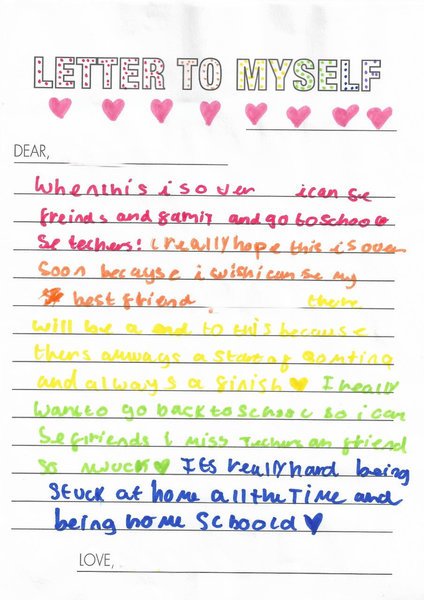 LETTER TO MYSELF
DEAR,
When this is over i can se
freinds and famiy and go to school
se techers! i really hope this is over
soon because i wish i can se my
best friend. there
will be a end to this because
thers always a start of somting
and always a finish I really
want to go back to school so i can
se friends i miss techers an friend
so much Its really hard being
stuck at home all the time and
being home schoold
LOVE,